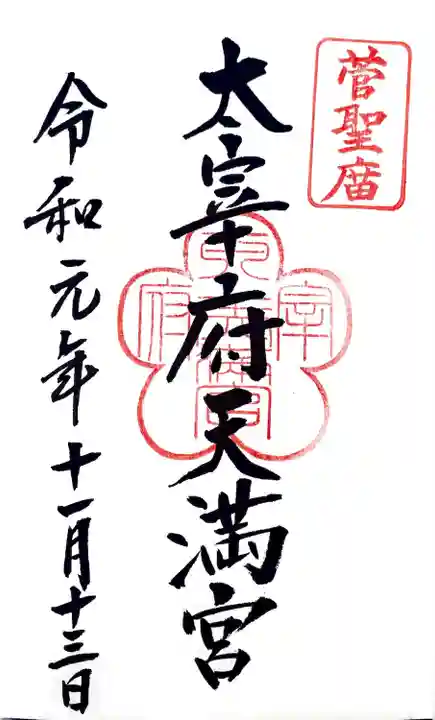 菅聖庿
太宰府天満宮
令和元年十一月十三日